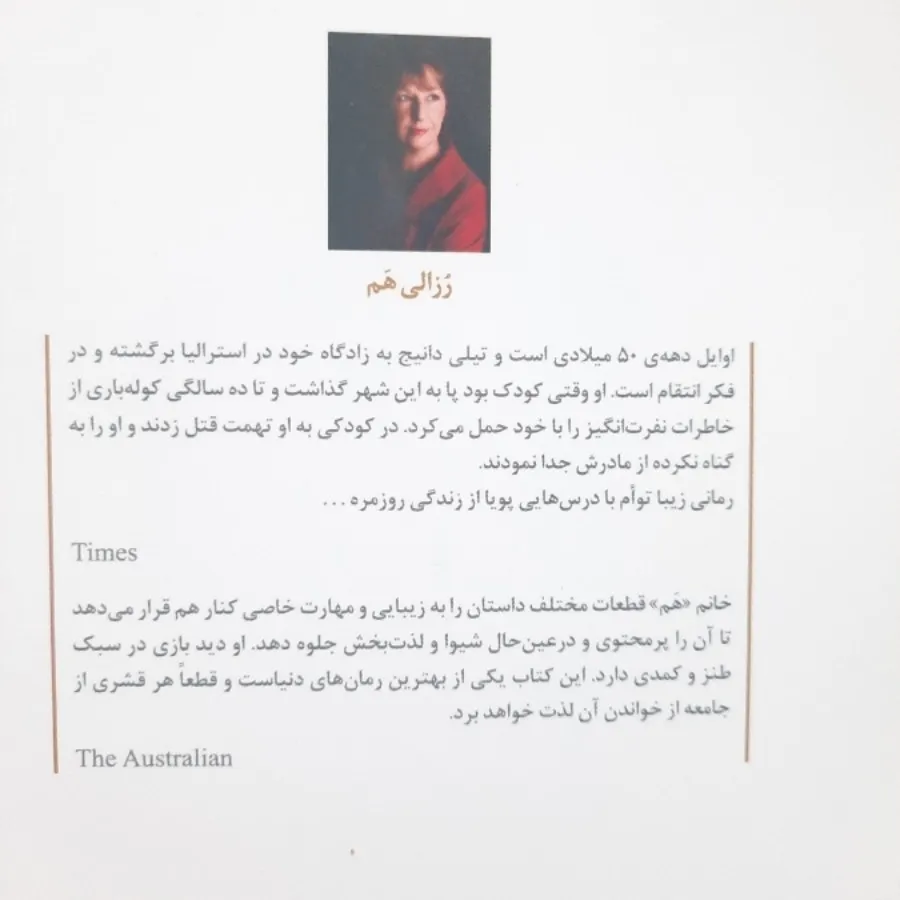 رُزالی هَم
اوایل دهه‌ی ۵۰ میلادی است و تیلی دانیج به زادگاه خود در استرالیا برگشته و در
فکر انتقام است. او وقتی کودک بود پا به این شهر گذاشت و تا ده سالگی کوله‌باری از
خاطرات نفرت‌انگیز را با خود حمل می‌کرد. در کودکی به او تهمت قتل زدند و او را به
گناه نکرده از مادرش جدا نمودند.
رمانی زیبا توأم با درس‌هایی پویا از زندگی روزمره ...
Times
خانم «هَم» قطعات مختلف داستان را به زیبایی و مهارت خاصی کنار هم قرار می‌دهد
تا آن را پرمحتوی و درعین‌حال شیوا و لذت‌بخش جلوه دهد. او دید بازی در سبک
طنز و کمدی دارد. این کتاب یکی از بهترین رمان‌های دنیاست و قطعاً هر قشری از
جامعه از خواندن آن لذت خواهد برد.
The Australian